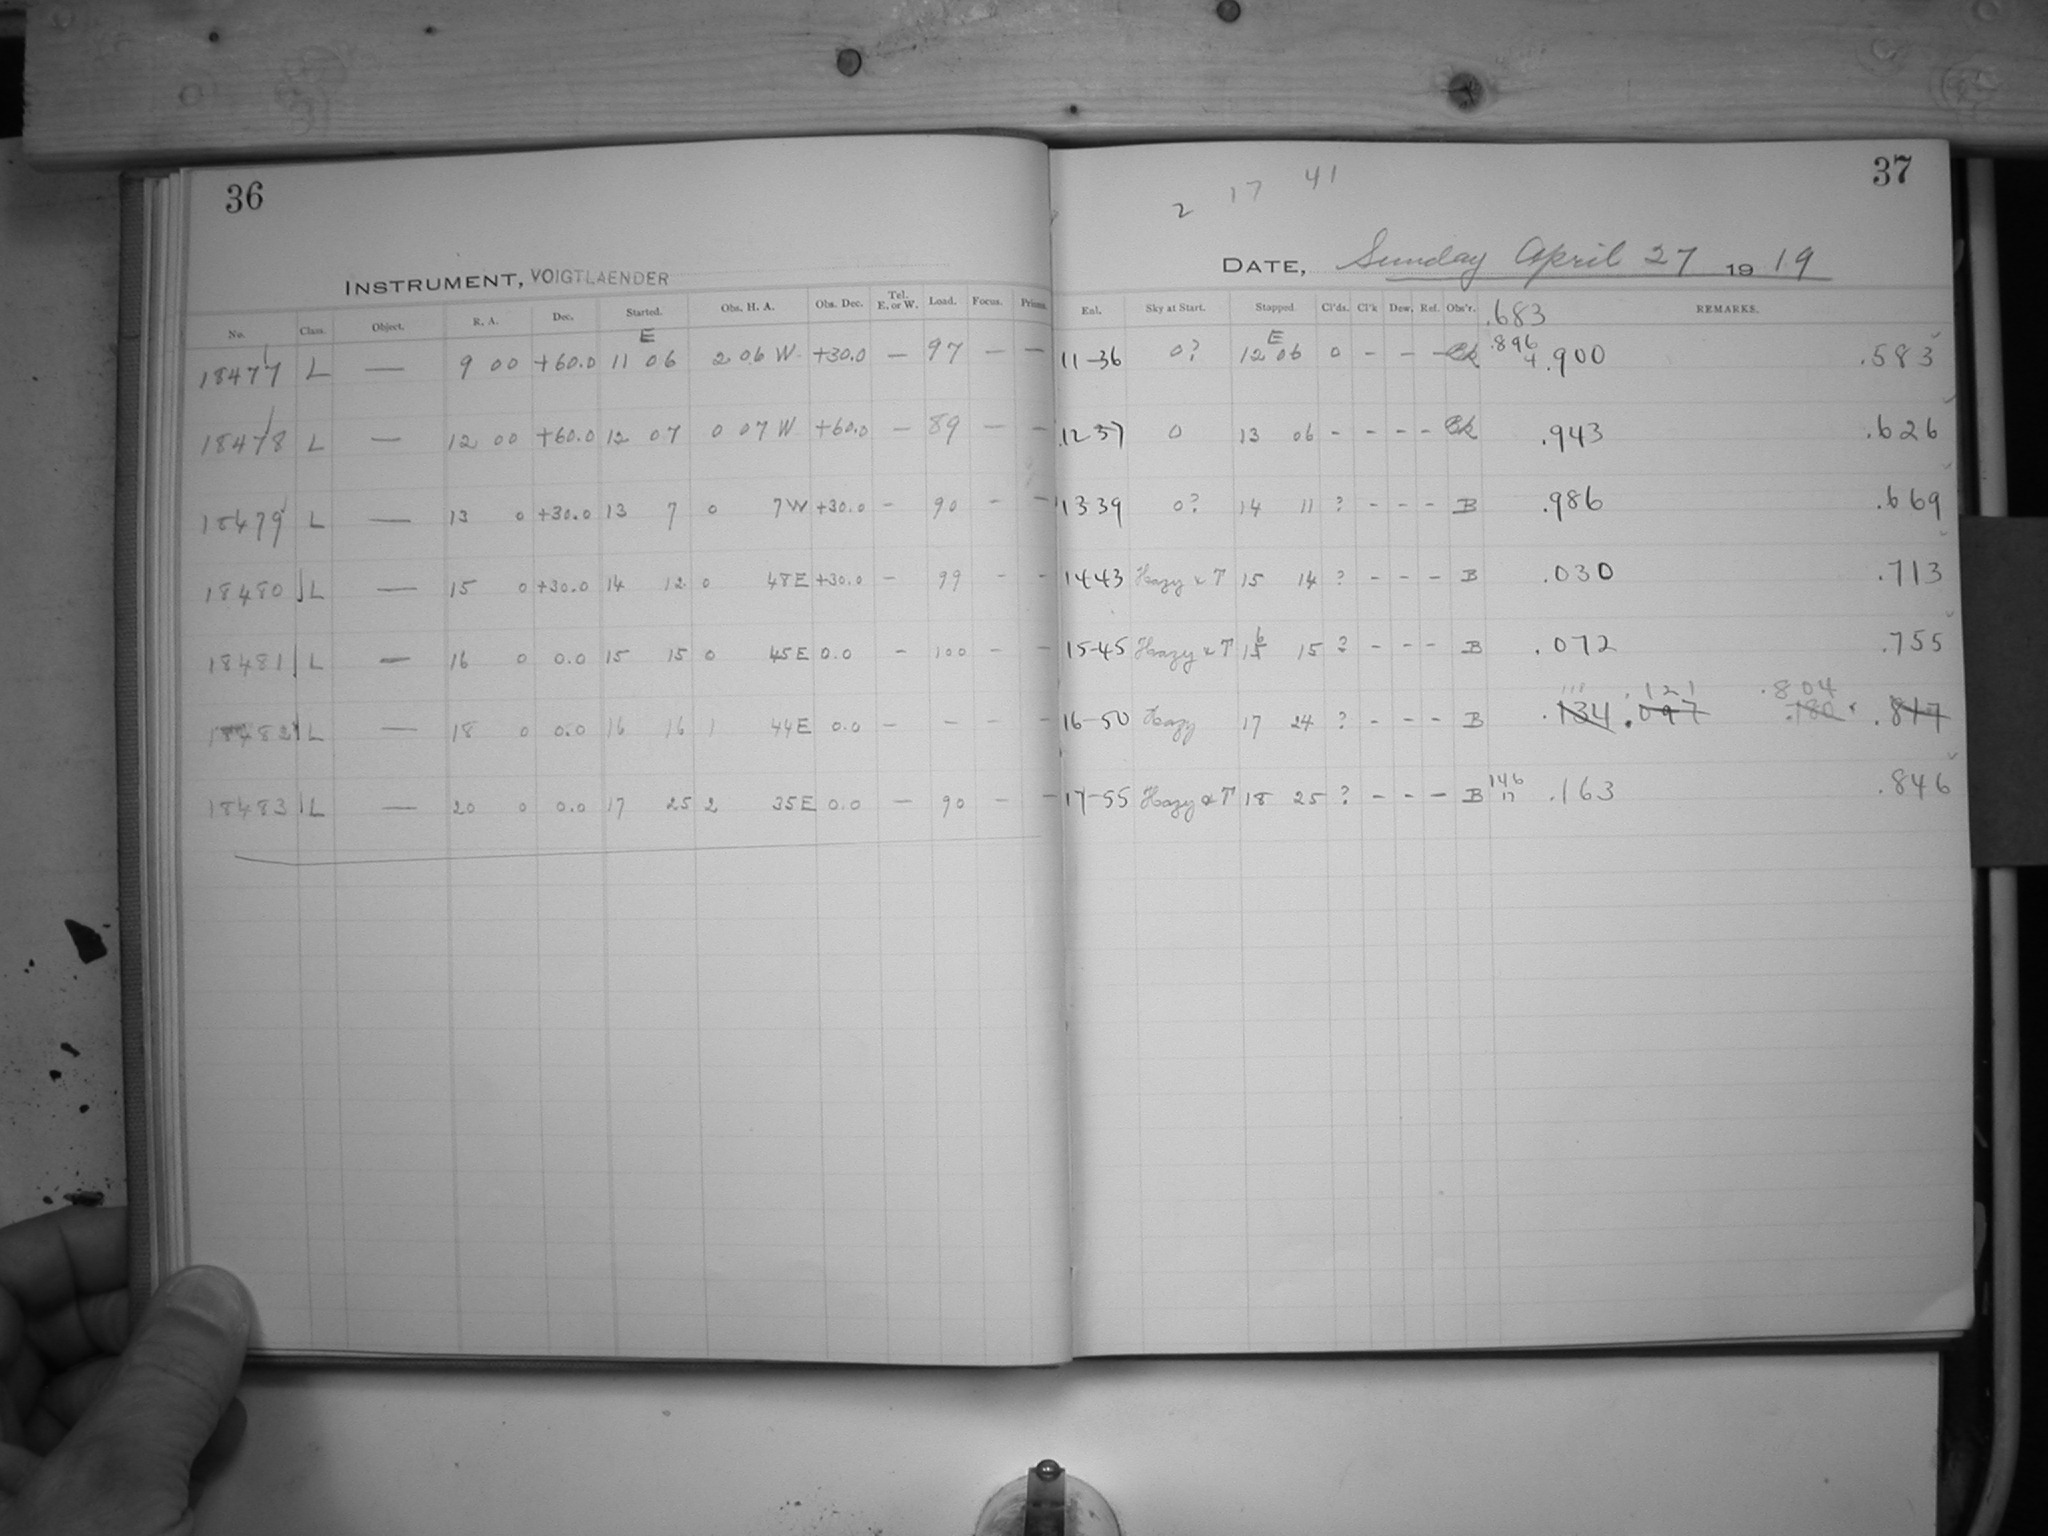 36
INSTRUMENT, VOIGTLAENDER
No. Class. Object. R. A. Dec. Started. Obs. H. A. Obs. Dec. Tel. E. or W. Load. Focus. Prisms.
E
18477 L — 9 00 +60.0 11 06 2 06 W +30.0 — 97 — —
18478 L — 12 00 +60.0 12 07 0 07 W +60.0 — 89 — —
18479 L — 13 0 +30.0 13 7 0 7W +30.0 - 90 - -
18480 L — 15 0 +30.0 14 12 0 48E +30.0 - 99 - -
18481 L — 16 0 0.0 15 15 0 45E 0.0 - 100 - -
18482 L — 18 0 0.0 16 16 1 44E 0.0 - - - -
18483 L — 20 0 0.0 17 25 2 35E 0.0 — 90 - -
37
2 17 41
DATE, Sunday April 27 1919
Enl. Sky at Start. Stopped. Cl'ds. Cl'k Dew. Ref. Obs'r. REMARKS.
.683
E .896
11-36 0? 12 06 0 - - - Ck 4 .900 .583
12 37 0 13 06 - - - - Ck .943 .626
13 39 0? 14 11 ? - - - B .986 .669
14 43 Hazy & T 15 14 ? - - - B .030 .713
15-45 Hazy & T 15 6 15 ? - - - B .072 .755
118 .121 .804
16-50 Hazy 17 24 ? - - - B .134 .097 .180 .817
146
17-55 Hazy & T 18 25 ? - - - B 17 .163 .846